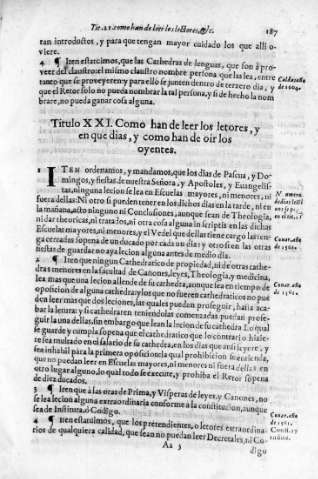 Tit. 21. como han de leer los lectores, &c. 187
tan introductos, y para que tengan mayor cuidado los que alli o-
yere.
4 ¶ Iten estatuimos, que las Cathedras de lenguas, que son à pro-
veer del claustro: el mismo claustro nombre persona que las lea, entre
tanto que se proveyeren y para ello se junten dentro de tercero dia, y
que el Retor solo no pueda nombrar la tal persona, y si de hecho la nom
brare, no pueda ganar cosa alguna.
Titulo XXI. Como han de leer los letores, y
en que dias, y como han de oir los
oyentes.
1 ITEN ordenamos, y mandamos, que los dias de Pascua, y Do-
mingos, y fiestas de nuestra Señora, y Apostoles, y Evangelis-
tas, ninguna lecion se lea en Escuelas mayores, ni menores, ni
fuera dellas: Ni otro si pueden tener en los dichos dias en la tarde, ni en
la mañana, acto ninguno ni Conclusiones, aunque sean de Theologia,
ni dar theoricas, ni
Escuelas mayores, ni menores, y el Vedel que dellas tiene cargo las ten-
ga cerradas so pena de un ducado por cada un dia: y otro si en las otras
fiestas de guardar no aya lecion alguna antes de medio dia.
2 ¶ Iten que ningun Cathedratico de propiedad, ni de otras cathe-
dras menores en la facultad de Canones, leyes, Theologia, y medicina,
lea mas que una lecion allende de su cathedra, aunque sea en tiempo de
oposicion de alguna cathedra y los que no fueren cathedraticos no pue
den leer mas que dos leciones, las quales puedan proseguir, hasta aca-
bar la letura: y si cathedra ren teniendolas començadas puedan prose-
guir la una dellas, sin embargo que lean la lecion de su cathedra. Lo qual
se guarde y cumpla so pena que el cathedratico que lo contrario hizie-
re sea multado en el salario de su cathedra, en los dias que assi leyere, y
sea inhabil para la primera oposicion: la qual prohibicion se entienda,
que no puedan leer en Escuelas mayores, ni menores ni fuera dellas en
otro lugar alguno, lo qual todo se execute, y prohiba el Retor so pena
de diez ducados.
3 ¶ Iten que à las oras de Prima, y Visperas de leyes, y Canones, no
se lea lecion alguna extraordinaria conforme a la constitucion, aunque
sea de Instituta, ò Codigo.
4 ¶ Iten estatuimos, que los pretendientes, ni otros letores
de qualquiera calidad, que sean no puedan leer Decretales, ni Co-
Aa 3 digo